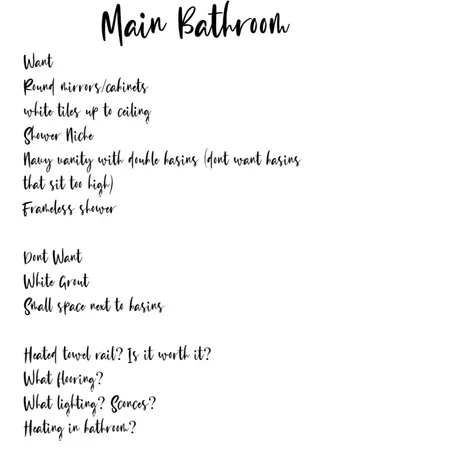 Main Bathroom
Want
Round mirrors/cabinets
white tiles up to ceiling
Shower Niche
Navy vanity with double basins (dont want basins
that sit too high)
Frameless shower
Dont Want
White Grout
Small space next to basins
Heated towel rail? Is it worth it?
What flooring?
What lighting? Sconces?
Heating in bathroom?